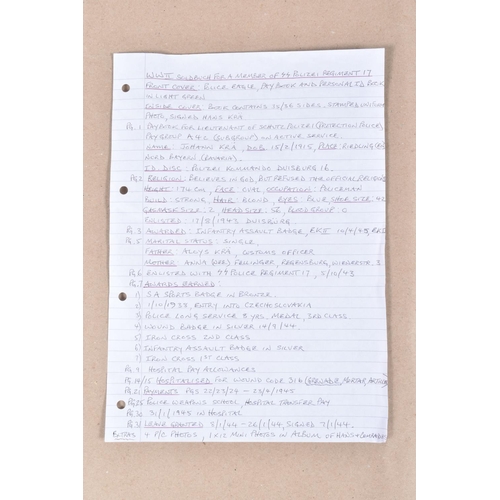 WWII SOLDBUCH FOR A MEMBER OF SS POLIZEI REGIMENT 17
FRONT COVER: POLICE EAGLE, PAY BOOK AND PERSONAL ID BOOK
IN LIGHT GREEN
INSIDE COVER BOOK CONTAINS SIDES, STAMPED, UNIFORM
PHOTO, SIGNED HANS KRA
Pg.1 PAYBOOK FOR LIEUTENANT OF SCHUTZ POLIZEI (PROTECTION POLICE)
PAYGROUP (SUBGROUP) ON ACTIVE SERVICE.
NAME: JOHANN KRA, D.O.B. 1915, PLACE
NORD BAYERN (BAVARIA).
I.D. DISC: POLIZEI KOMMANDO DUISBURG 16.
Pg2 RELIGION: BELIEVES IN GOD, BUT REFUSED THE OFFICIAL RELIGIONS
HEIGHT: 174 CM, FACE OVAL, OCCUPATION: POLICEMAN
BUILD: STRONG, HAIR: BLOND, EYES: BLUE, SHOE SIZE: 42
GASMASK SIZE: 2, HEAD SIZE: 57, BLOOD GROUP: O
ENLISTED: 1943 DUISBURG
Pg.3 AWARDED: INFANTRY ASSAULT BADGE,
Pg.5 MARITAL STATUS: SINGLE.
FATHER: ALOYS KRA, CUSTOMS OFFICER
MOTHER: ANNA (NEE) REGENSBURG,
Pg.6 ENLISTED WITH SS POLIZEI REGIMENT 17, 5/10/43
Pg.7 AWARDS EARNED:
1) S.A SPORTS BADGE IN BRONZE.
2) 1/10/1938, ENTRY INTO CZECHOSLOVAKIA
3) POLICE LONG SERVICE 8 YRS, MEDAL, 3RD CLASS
4) WOUND BADGE IN SILVER 14/9/44.
5) IRON CROSS 2ND CLASS
6) INFANTRY ASSAULT BADGE IN SILVER
7) IRON CROSS 1ST CLASS
Pg.9 HOSPITAL PAY ALLOWANCES
Pg.14/15 HOSPITALISED FOR WOUND CODE 31b (GRENADE, MORTAR,
Pg.21 PAYMENTS PGS 22/23/24 - 1945
Pg.25 POLICE WEAPONS SCHOOL, HOSPITAL TRANSFER PAY
Pg.30 31/1/1945 IN HOSPITAL
Pg.31 LEAVE GRANTED 8/1/44 - 26/1/44, SIGNED 7/1/44.
EXTRAS 4 P/C PHOTOS, MINI PHOTOS IN ALBUM OF HANS + COMRADES